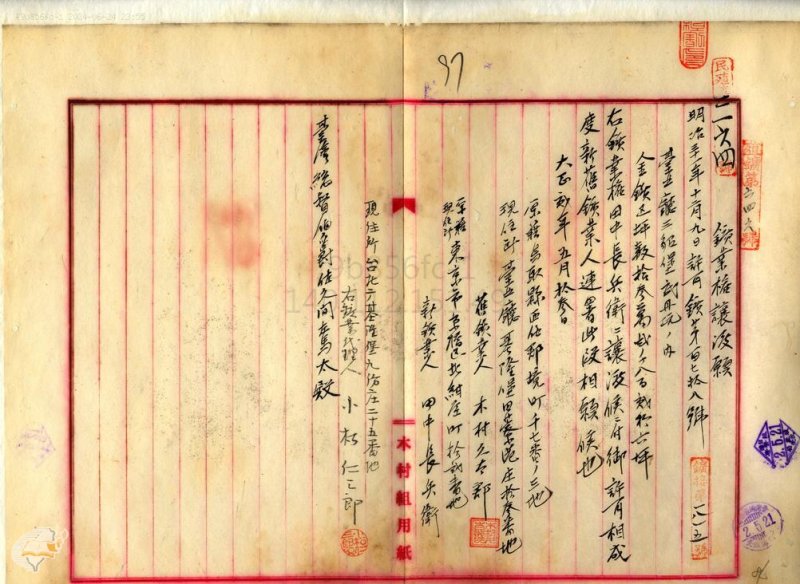 97
民殖
二一六四
鑛業權讓渡願
明治三十一年十一月九日許可鑛第百七拾八號
臺北廳三貂堡武丹坑ノ内
金鑛区坪數拾参萬弐千八百弐拾六坪
右鑛業權田中長兵衛ニ讓渡候ニ付御許可相成
度新舊鑛業人連署此段相願候也
大正弐年五月拾参日
原籍鳥取縣西伯郡境町千七番ノ三地
現住所臺北廳基隆堡田寮港庄拾参番地
舊鑛業人 木村久太郎
原籍現住所 東京市京橋区北紺屋町拾弐番地
新鑛業人 田中長兵衛
現住所台北廳基隆堡九份庄二十五番地
右鑛業代理人 小松仁三郎
臺灣總督伯爵佐久間左馬太殿
木村組用紙
2.5.21
2.5.21